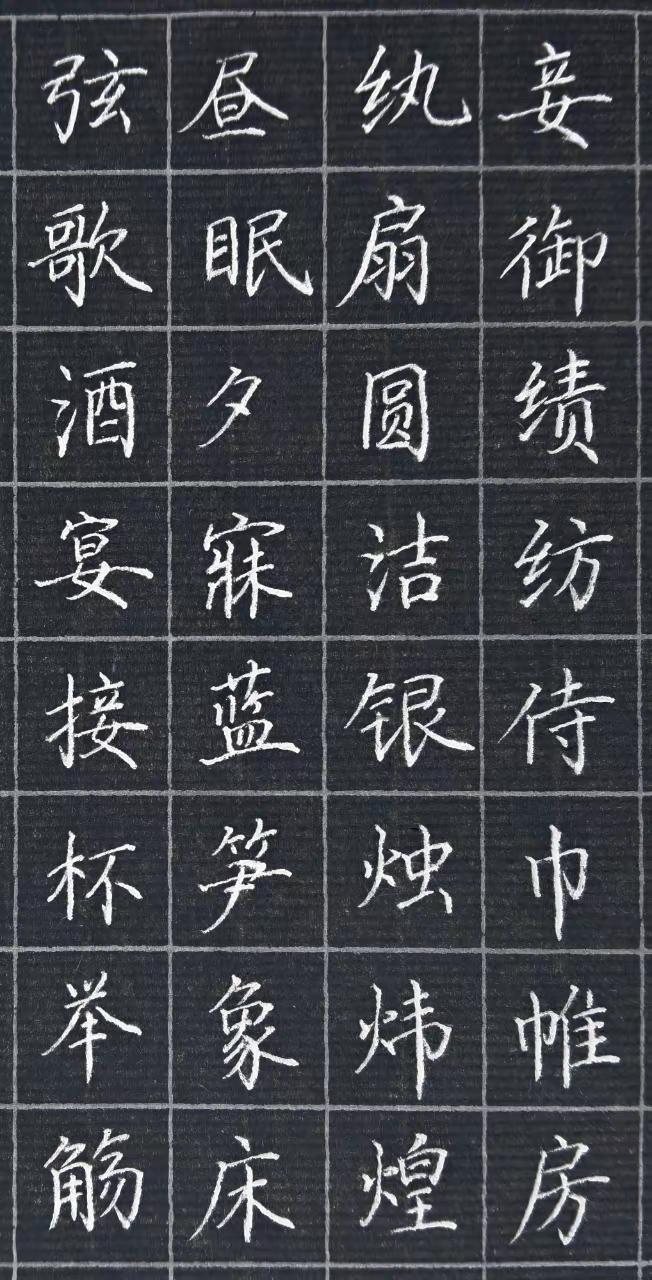 妾御绩纺侍巾帷房
纨扇圆洁银烛炜煌
昼眠夕寐蓝笋象床
弦歌酒宴接杯举觞